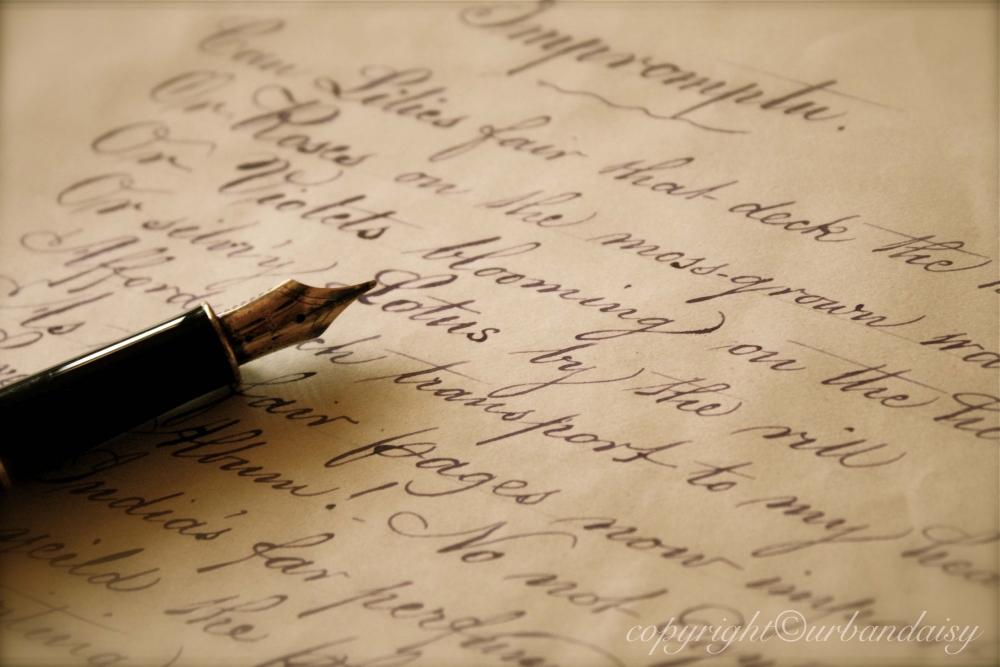 Impromptu.
Can Lilies fair that deck the
Or Roses on the moss-grown
Or Violets blooming on the
Or silv'ry Lotus by the rill
Afford transport to my
As fair pages now
Album! No not
India's far
yeild the
copyright©urbandaisy